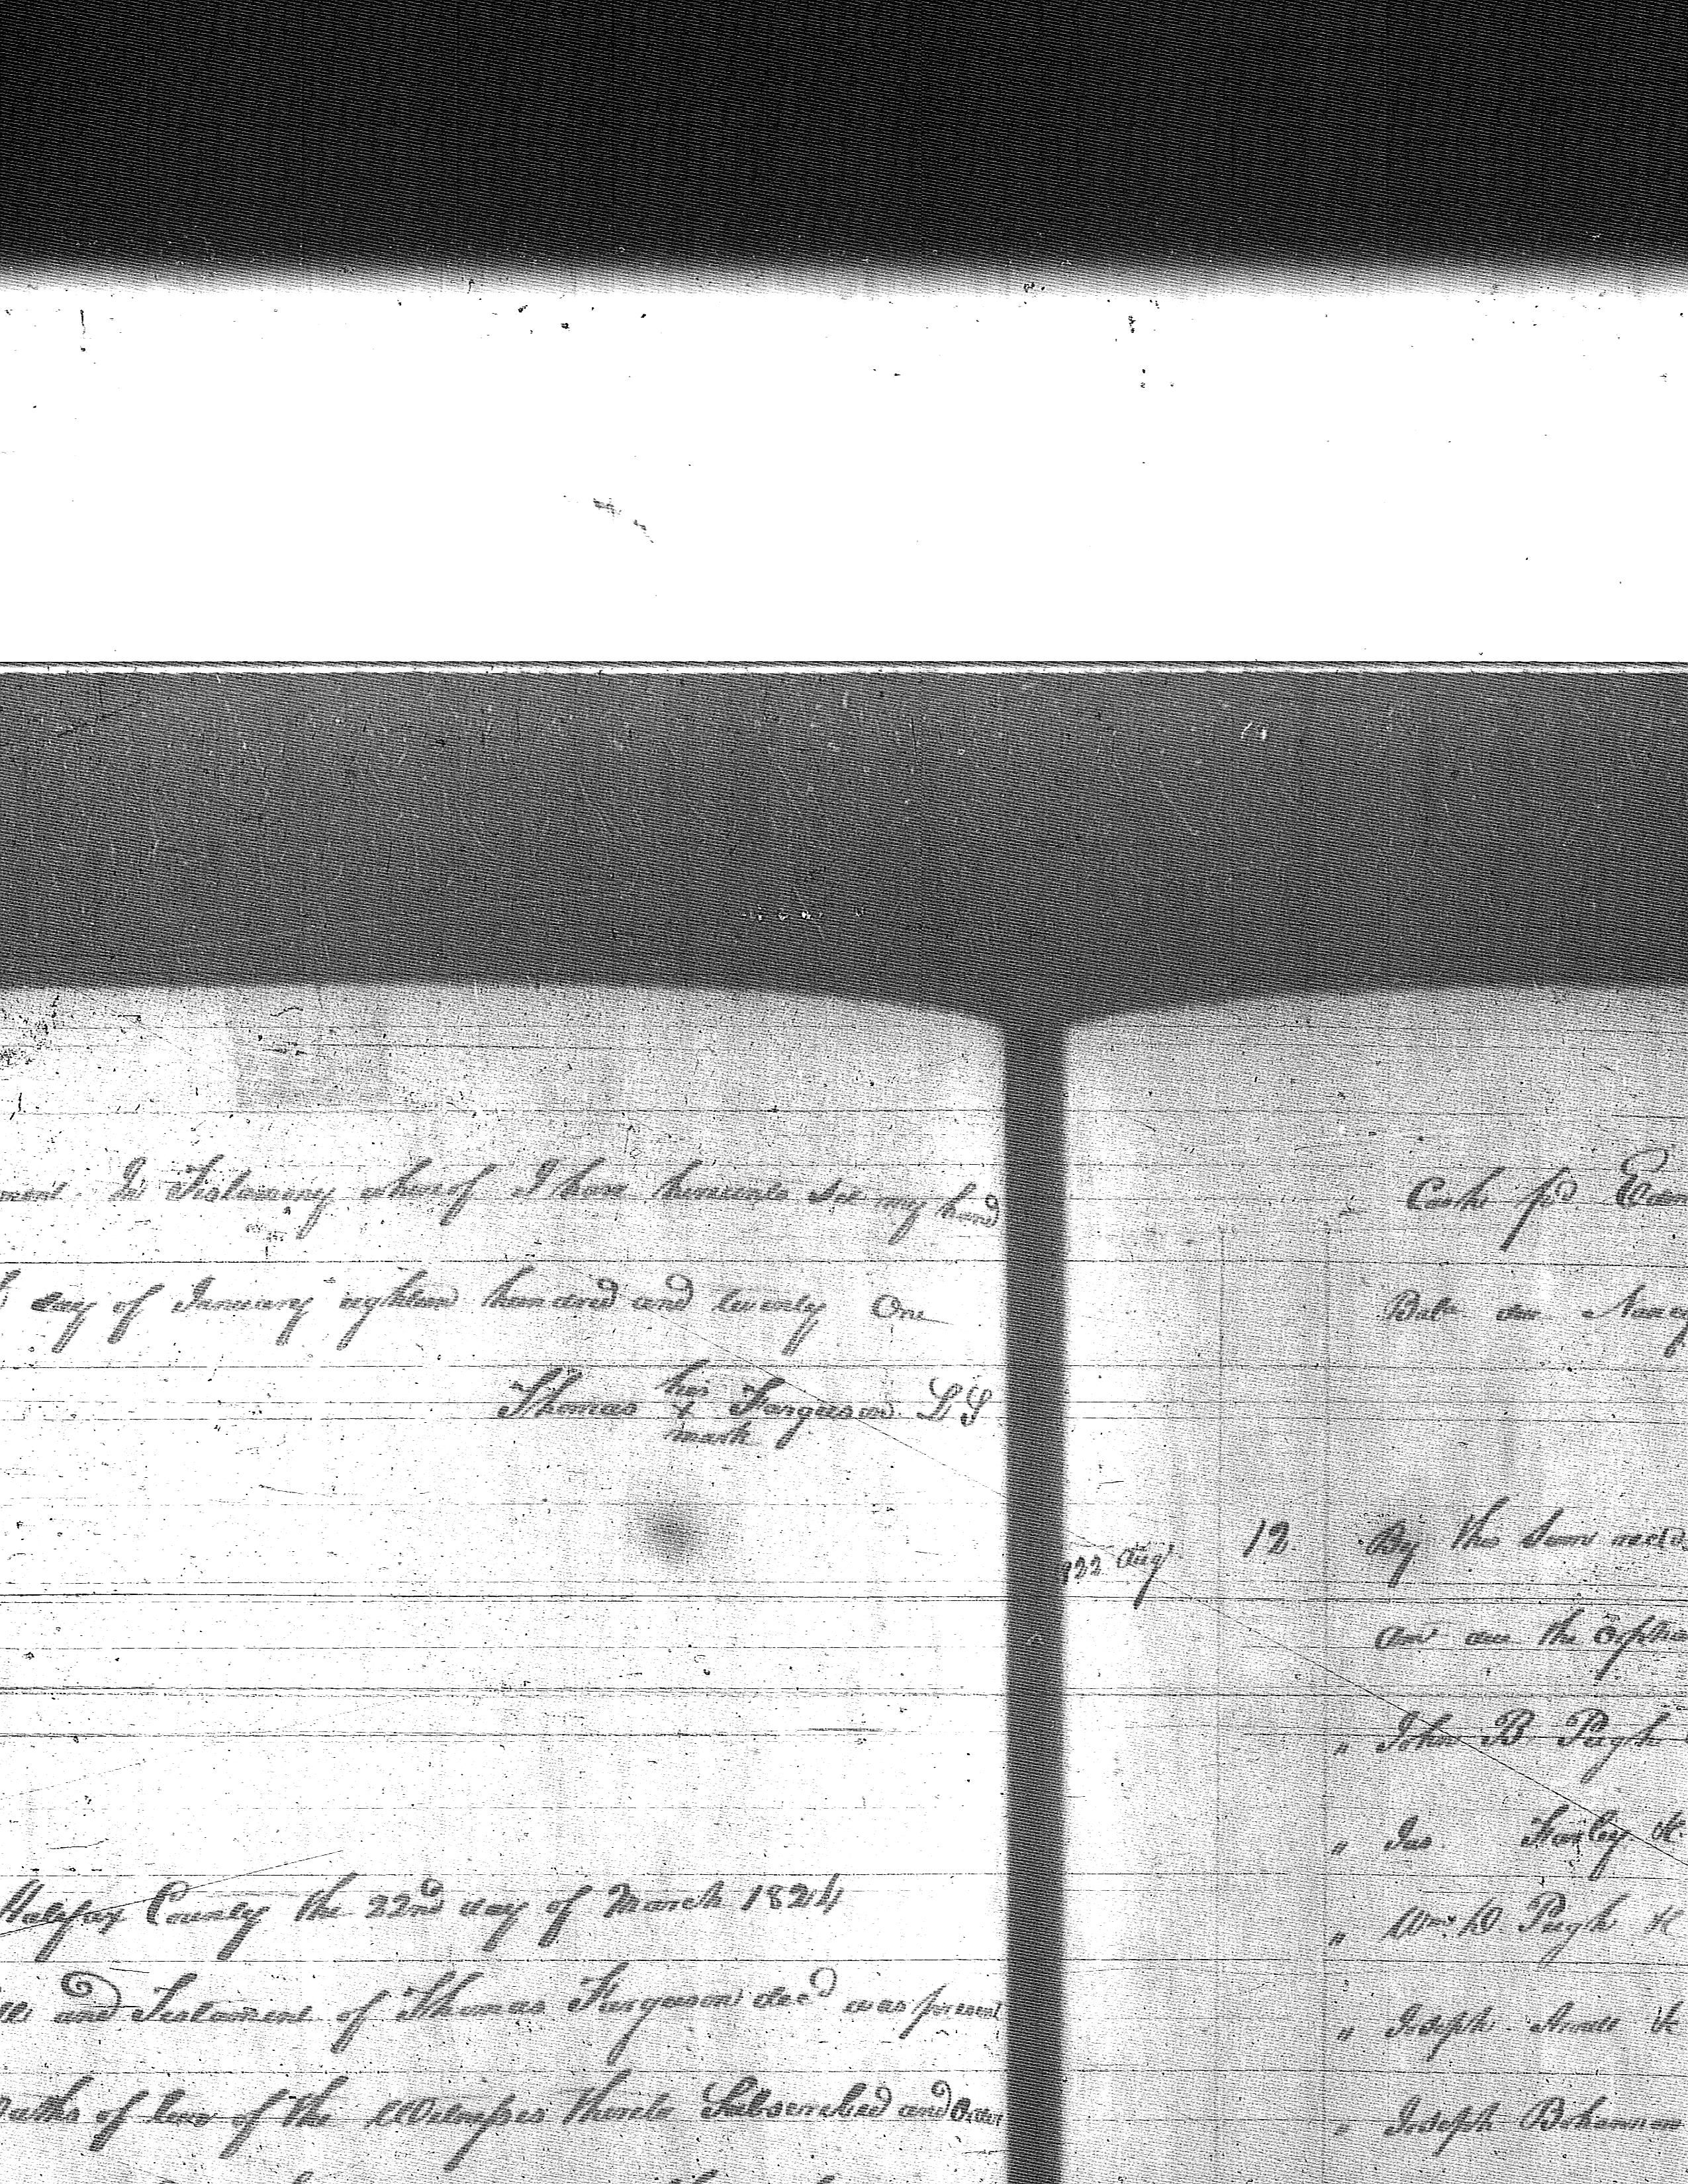 In Testamony whereof I have hereunto set my hand
day of January eighteen hundred and twenty One
his
Thomas + Farguson LS
mark
Halifax County the 22nd day of March 1824
and Testament of Thomas Farguson decd was present
oaths of law of the Witnesses thereto Subscribed and Order
Cash pd
Balr due Nancy
1822 Augt 12. By this Sum
due the
" John B. Pugh
" Jas Farley &
" Wm. D Pugh &
" Joseph &
" Joseph Bohannon